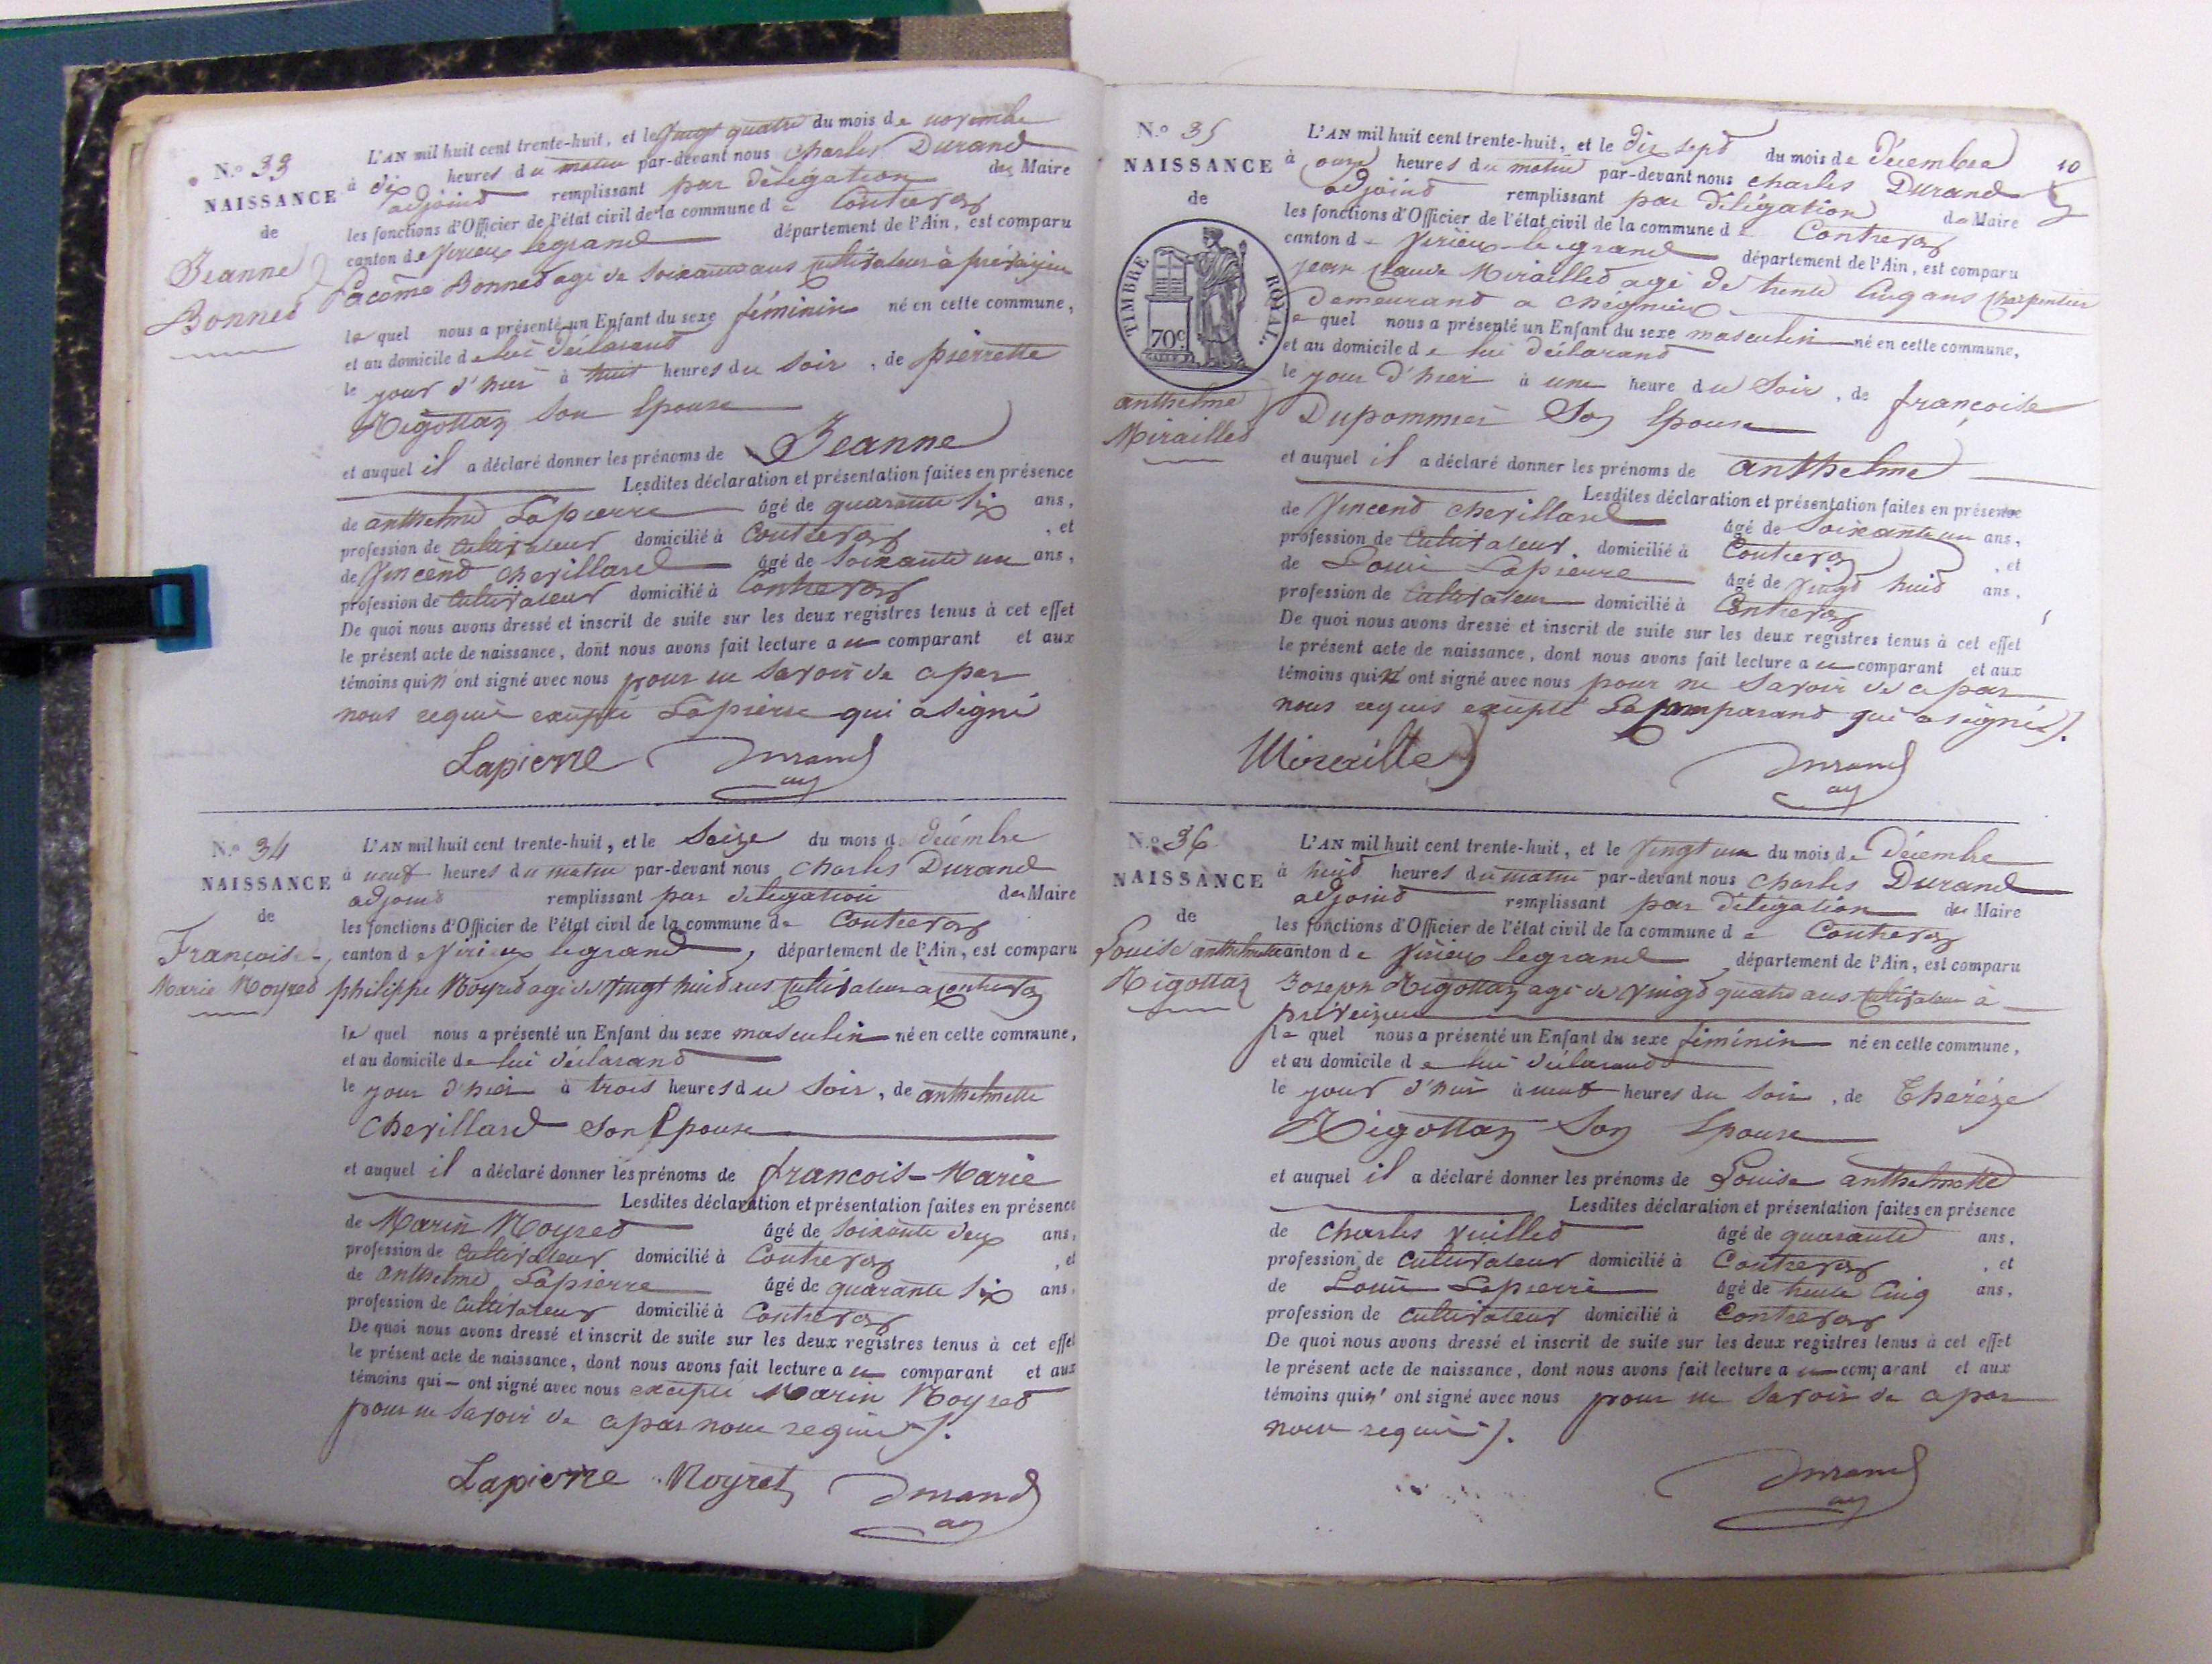 N.º 33
NAISSANCE
de
Jeanne
Bonnet
L'AN mil huit cent trente-huit, et le vingt quatre du mois de novembre
à dix heures du matin par-devant nous charles Durand
adjoint remplissant par délégation du Maire
les fonctions d'Officier de l'état civil de la commune de Contrevoz
canton de Virieux legrand département de l'Ain, est comparu
Pacôme Bonnet agé de soixante ans cultivateur à préveizieu
le quel nous a présenté un Enfant du sexe féminin né en cette commune,
et au domicile de lui déclarant
le jour d'hier à huit heures du soir, de pierrette
Rigottaz son Epouse
et auquel il a déclaré donner les prénoms de Jeanne
Lesdites déclaration et présentation faites en présence
de anthelme Lapierre âgé de quarante six ans,
profession de cultivateur domicilié à Contrevoz, et
de Vincent chevillard âgé de soixante un ans,
profession de cultivateur domicilié à Contrevoz
De quoi nous avons dressé et inscrit de suite sur les deux registres tenus à cet effet
le présent acte de naissance, dont nous avons fait lecture au comparant et aux
témoins qui n'ont signé avec nous pour ne savoir de ce par
nous requis excepté Lapierre qui a signé
Lapierre Durand
adj
N.º 34
NAISSANCE
de
François-
Marie Noyret
L'AN mil huit cent trente-huit, et le seize du mois de décembre
à neuf heures du matin par-devant nous charles Durand
adjoint remplissant par delegation du Maire
les fonctions d'Officier de l'état civil de la commune de Contrevoz
canton de Virieux legrand, département de l'Ain, est comparu
philippe Noyret agé de vingt huit ans cultivateur à contrevoz
le quel nous a présenté un Enfant du sexe masculin né en cette commune,
et au domicile de lui déclarant
le jour d'hier à trois heures du soir, de anthelmette
chevillard son Epouse
et auquel il a déclaré donner les prénoms de francois-Marie
Lesdites déclaration et présentation faites en présence
de Marin Noyret âgé de soixante deux ans,
profession de cultivateur domicilié à Contrevoz, et
de anthelme Lapierre âgé de quarante six ans,
profession de cultivateur domicilié à Contrevoz
De quoi nous avons dressé et inscrit de suite sur les deux registres tenus à cet effet
le présent acte de naissance, dont nous avons fait lecture au comparant et aux
témoins qui — ont signé avec nous excepté Marin Noyret
pour ne savoir de ce par nous requis /.
Lapierre Noyret Durand
adj
10
N.º 35
NAISSANCE
de
TIMBRE ROYAL.
70c
anthelme
Miraillet
L'AN mil huit cent trente-huit, et le dix sept du mois de décembre
à onze heures du matin par-devant nous charles Durand
adjoint remplissant par délégation du Maire
les fonctions d'Officier de l'état civil de la commune de Contrevoz
canton de Virieux-le grand département de l'Ain, est comparu
jean claude Miraillet agé de trente cinq ans charpentier
demeurant a cheignieu
le quel nous a présenté un Enfant du sexe masculin né en cette commune,
et au domicile de lui déclarant
le jour d'hier à une heure du soir, de françoise
Dupommier Son Epouse
et auquel il a déclaré donner les prénoms de anthelme
Lesdites déclaration et présentation faites en présence
de Vincent chevillard âgé de soixante un ans,
profession de cultivateur. domicilié à Contrevoz, et
de Louis Lapierre âgé de vingt huit ans,
profession de cultivateur domicilié à Contrevoz
De quoi nous avons dressé et inscrit de suite sur les deux registres tenus à cet effet
le présent acte de naissance, dont nous avons fait lecture au comparant et aux
témoins qui n' ont signé avec nous pour ne savoir de ce par
nous requis excepté Le comparant qui a signé /.
Miraillet Durand
adj
N.º 36
NAISSANCE
de
Louise anthelmette
Rigottaz
L'AN mil huit cent trente-huit, et le vingt un du mois de décembre
à huit heures du matin par-devant nous charles Durand
adjoint remplissant par délégation du Maire
les fonctions d'Officier de l'état civil de la commune de Contrevoz
canton de Virieux legrand département de l'Ain, est comparu
Joseph Rigottaz agé de vingt quatre ans cultivateur à
préveizieu
le quel nous a présenté un Enfant du sexe féminin né en cette commune,
et au domicile de lui déclarant
le jour d'hier à neuf heures du soir, de Thérèze
Rigottaz Son Epouse
et auquel il a déclaré donner les prénoms de Louise anthelmette
Lesdites déclaration et présentation faites en présence
de charles vuillet âgé de quarante ans,
profession de cultivateur domicilié à Contrevoz, et
de Louis Lapierre âgé de trente cinq ans,
profession de cultivateur domicilié à Contrevoz
De quoi nous avons dressé et inscrit de suite sur les deux registres tenus à cet effet
le présent acte de naissance, dont nous avons fait lecture au comparant et aux
témoins qui n' ont signé avec nous pour ne savoir de ce par
nous requis /.
Durand
adj